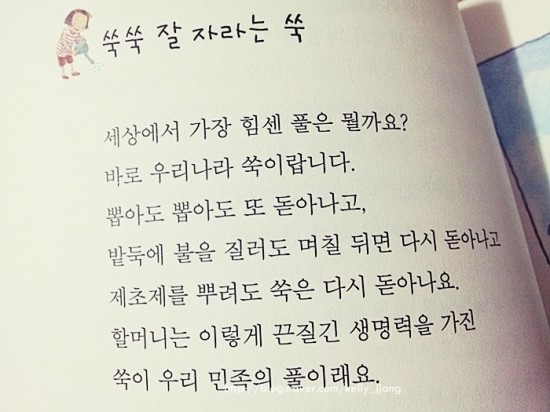 쑥쑥 잘 자라는 쑥
세상에서 가장 힘센 풀은 뭘까요?
바로 우리나라 쑥이랍니다.
뽑아도 뽑아도 또 돋아나고,
밭둑에 불을 질러도 며칠 뒤면 다시 돋아나고
제초제를 뿌려도 쑥은 다시 돋아나요.
할머니는 이렇게 끈질긴 생명력을 가진
쑥이 우리 민족의 풀이래요.